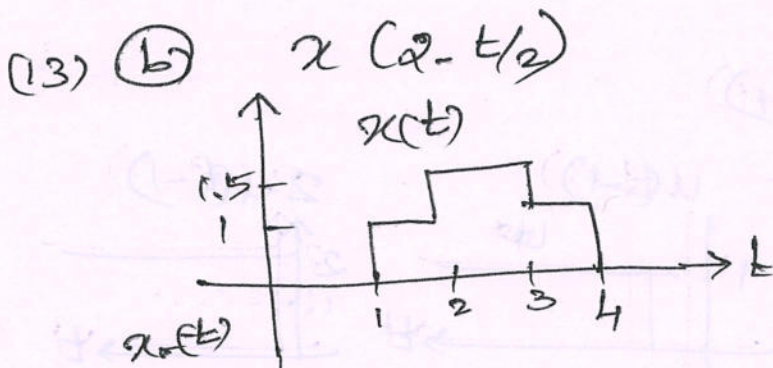 (13) (b) x (2 - t/2)
x(t)
1.5
1
t
1 2 3 4
x(t)